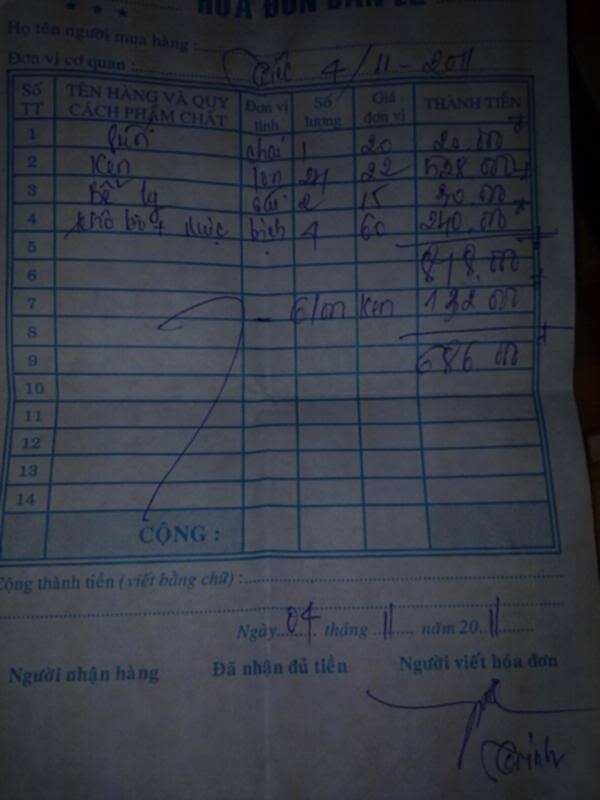 HÓA ĐƠN BÁN LẺ
Họ tên người mua hàng :
Đơn vị cơ quan : 4/11-2011
Số TT TÊN HÀNG VÀ QUY CÁCH PHẨM CHẤT Đơn vị tính Số lượng Giá đơn vị THÀNH TIỀN
1 chai 1 20 20.000
2 Ken lon 24 22 528.000
3 ly cái 2 15 30.000
4 khô mực bịch 4 60 240.000
5 818.000
6
7 - 6 lon Ken 132.000
8
9 686.000
10
11
12
13
14
CỘNG :
Cộng thành tiền (viết bằng chữ) :
Ngày 04 tháng 11 năm 20 11
Người nhận hàng Đã nhận đủ tiền Người viết hóa đơn
Trinh